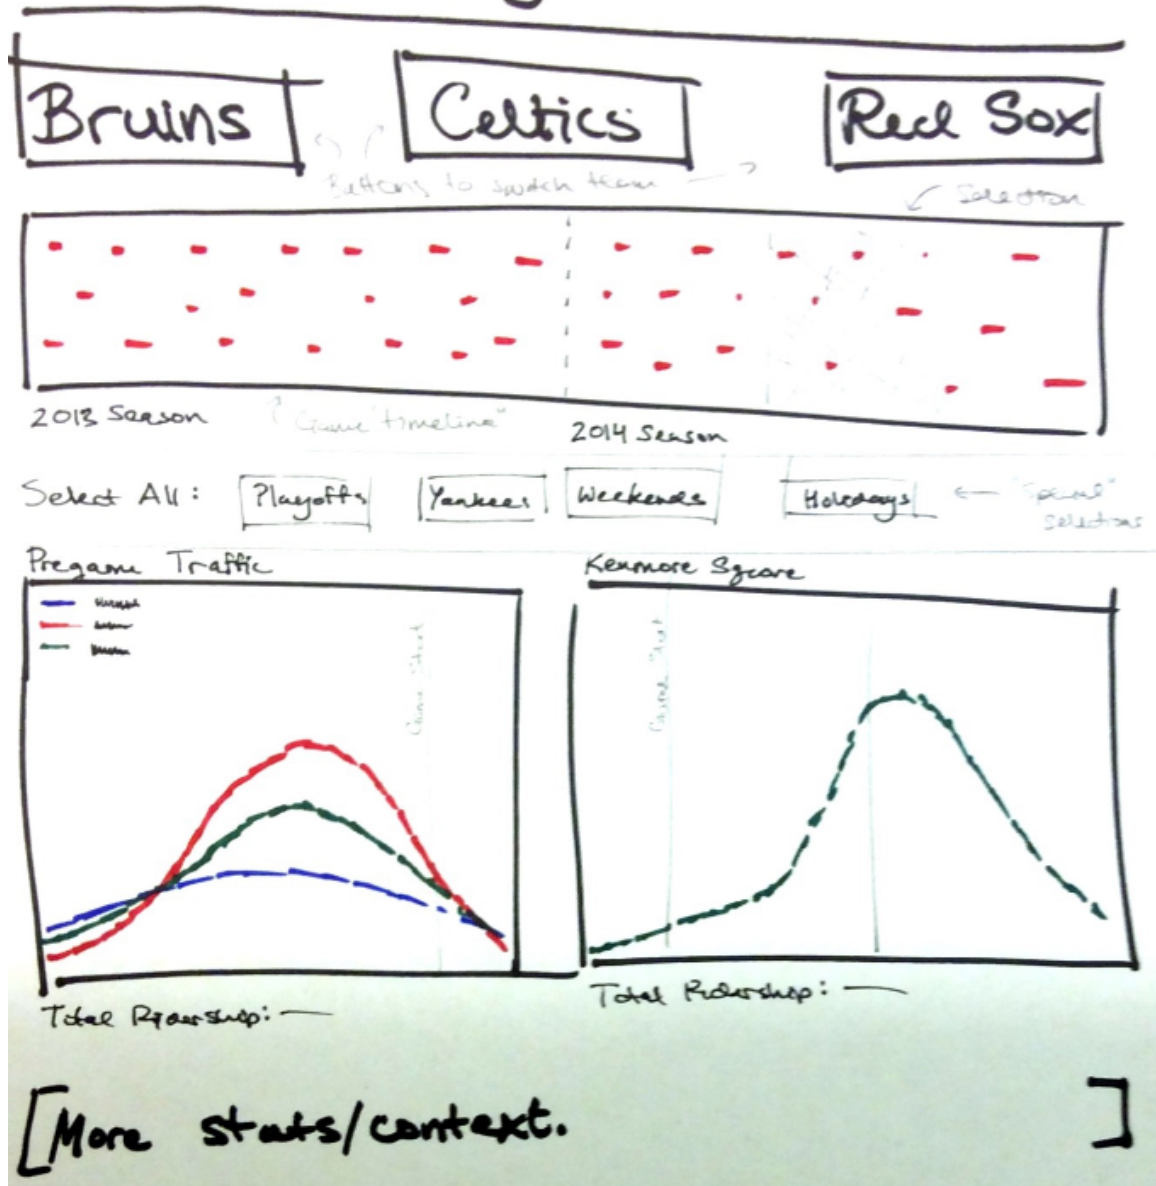 Bruins Celtics Red Sox
Buttons to switch team
Selection
2013 Season
Game "timeline"
2014 Season
Select All: Playoffs Yankees Weekends Holidays
"Special"
selections
Pregame Traffic
Kenmore Square
Game Start
Game Start
Total Ridership:
Total Ridership:
[More stats/context. ]